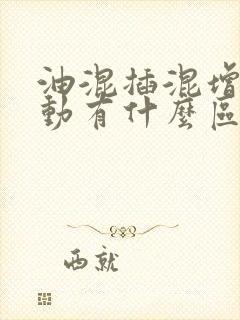 油混插混增
動有什麼區
西就